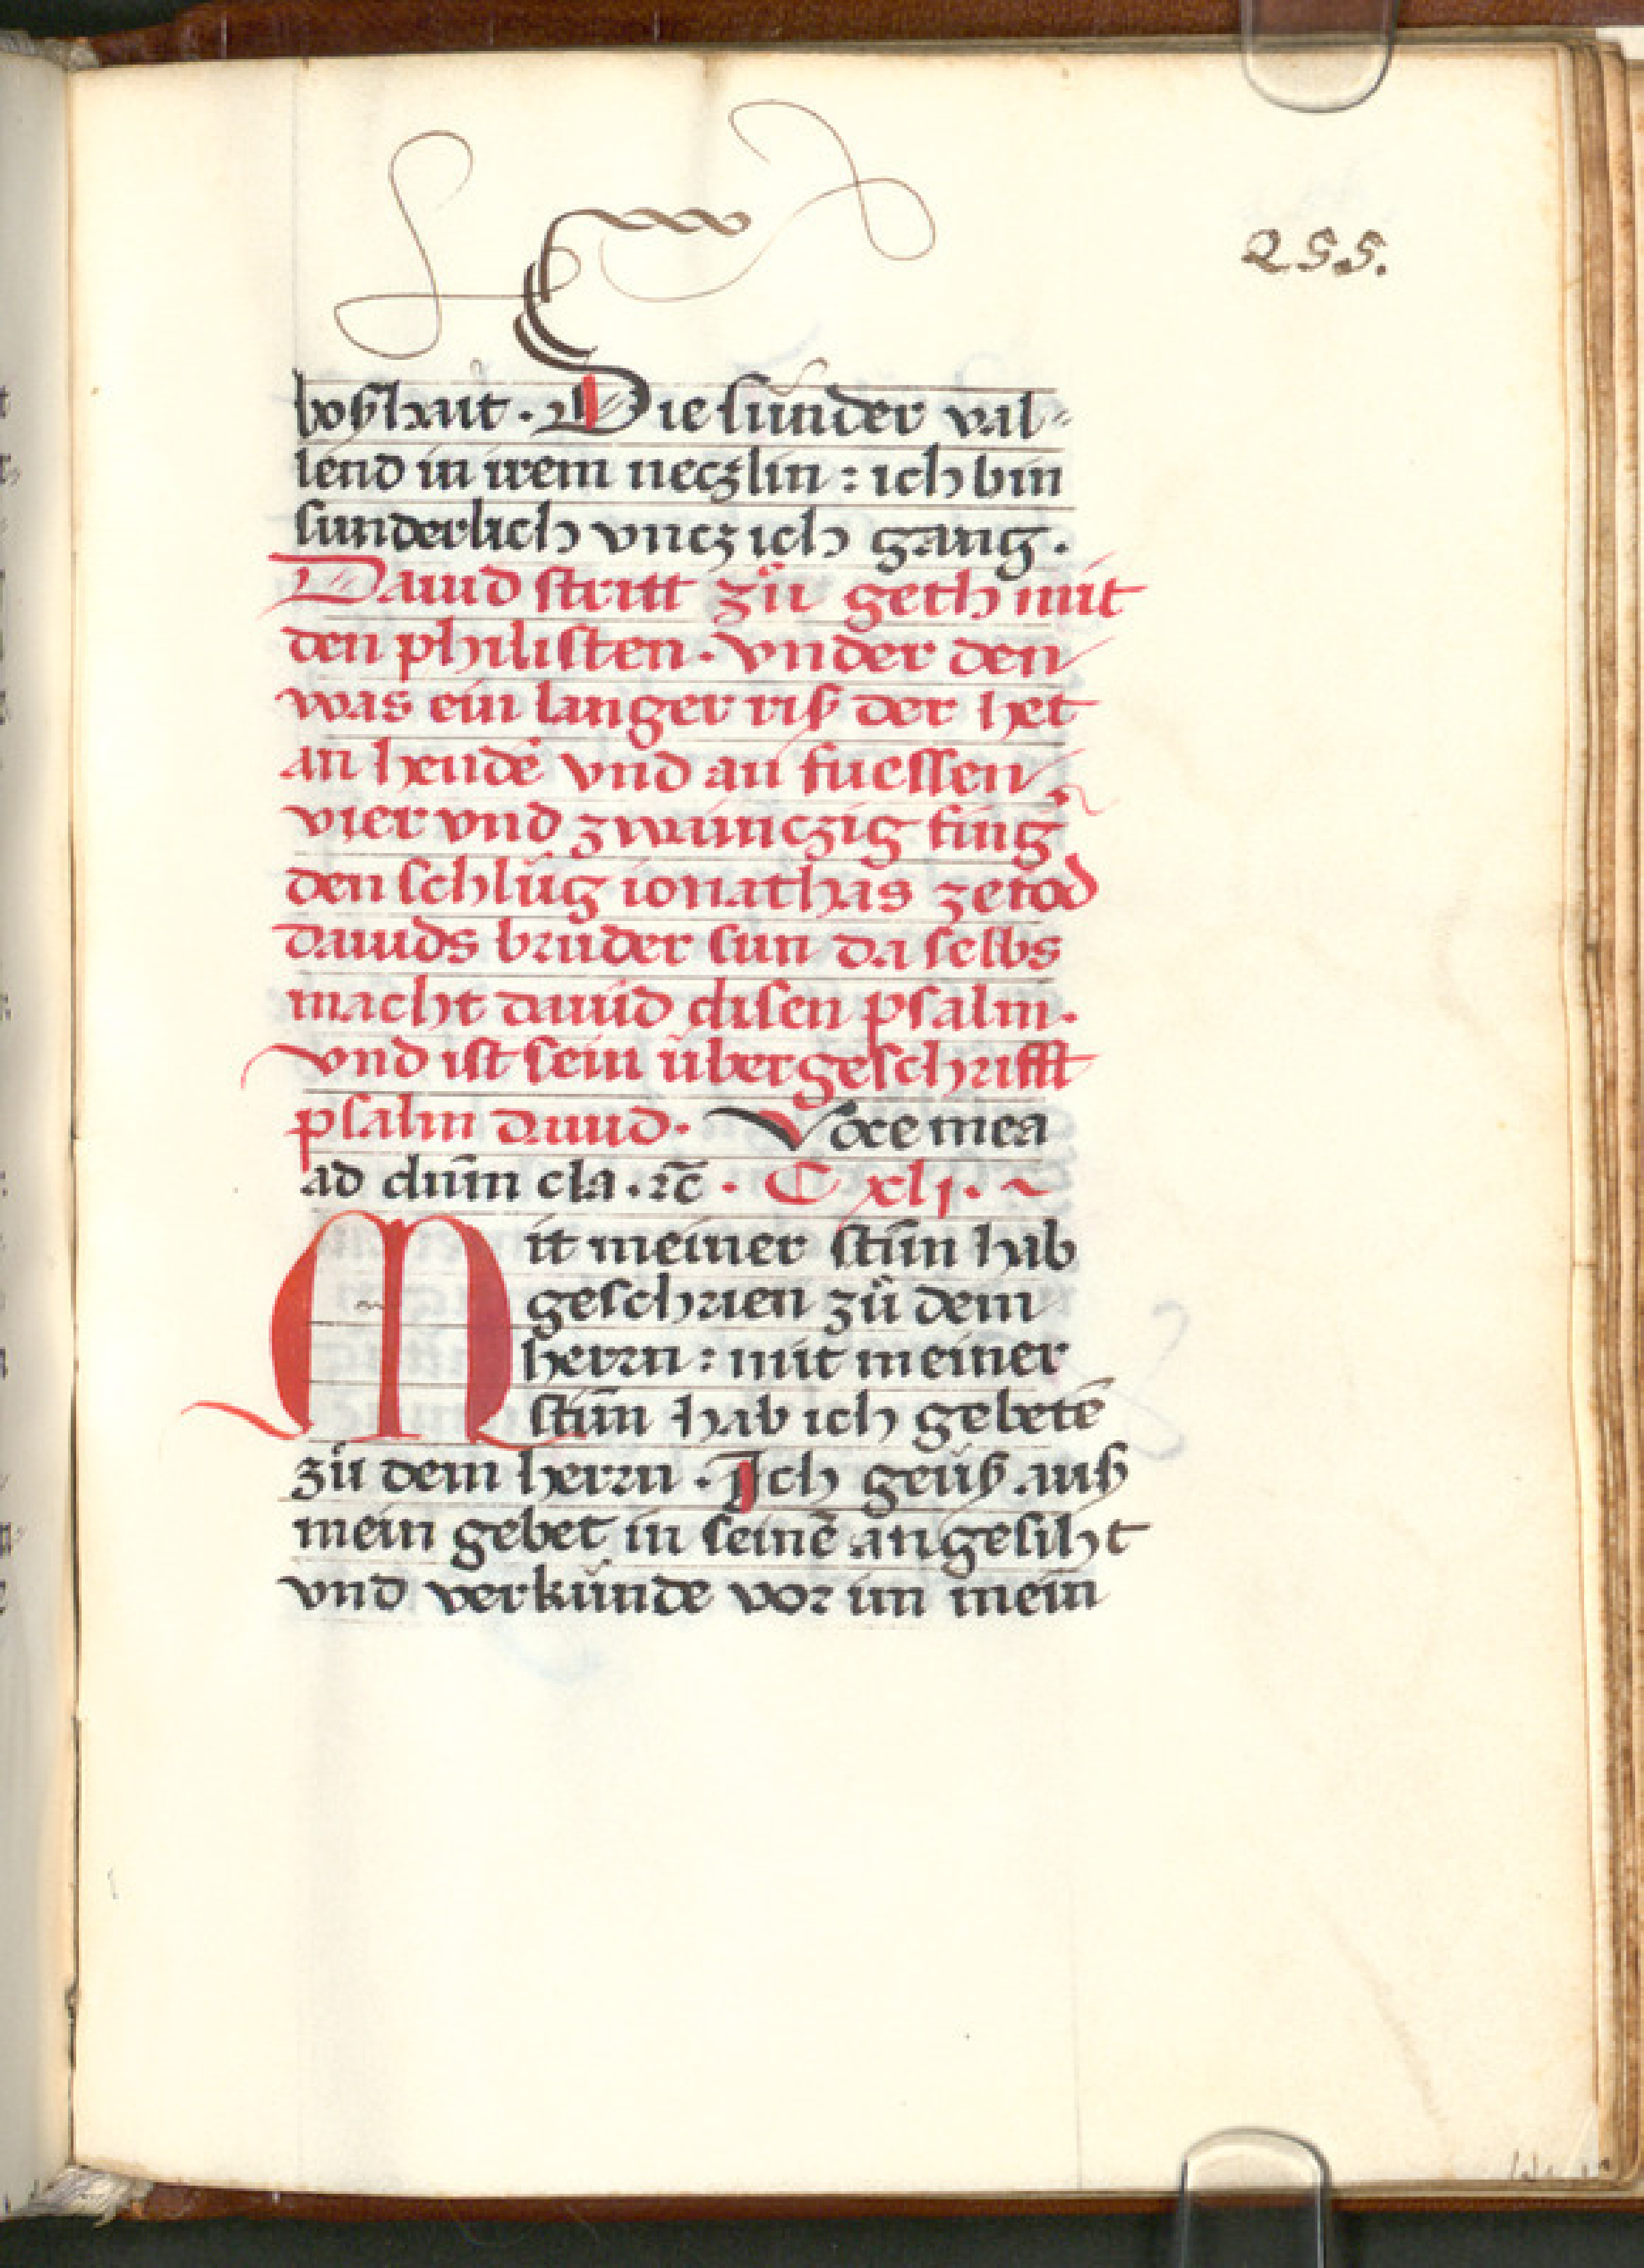 255.
boßhait. Die sünder val⸗
lend in irem neczlin : ich bin
sunderlich vncz ich gang.
Dauid stritt zů geth mit
den philisten. vnder den
was ein langer riß der het
an hendē vnd an fuessen
vier vnd zwainczig fing
den schlůg ionathas zetod
dauids brůder sun da selbs
macht dauid disen psalm.
vnd ist sein übergeschrifft
psalm dauid. Voce mea
ad dn̄m cla. ⁊c̄. C xlj. ~
Mit meiner stim̄ hab
geschrien zů dem
herrn : mit meiner
stim̄ hab ich gebetē
zů dem herrn. Ich geüß auß
mein gebet in seinē angesiht
vnd verkünde vor im mein